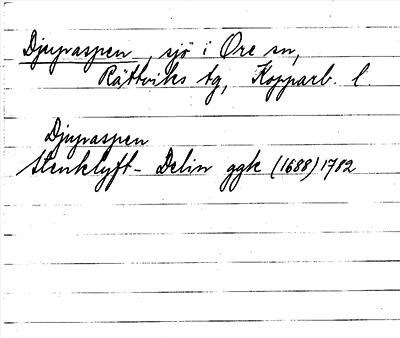 Djupaspen, sjö i Ore sn,
Rättviks tg, Kopparb. l.
Djupaspen
Stenklyft-Delin ggk (1688) 1782